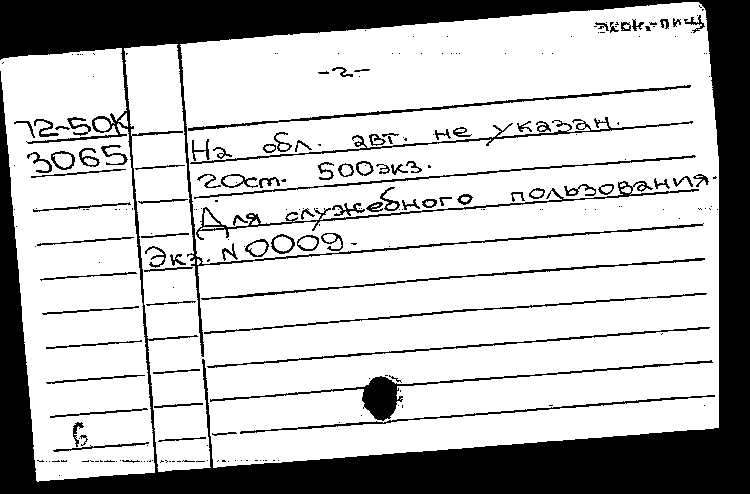 экон.-пищ
-2-
72-50К
3065
На обл. авт. не указан.
20см. 500экз.
Для служебного пользования.
Экз. N 0009.
6